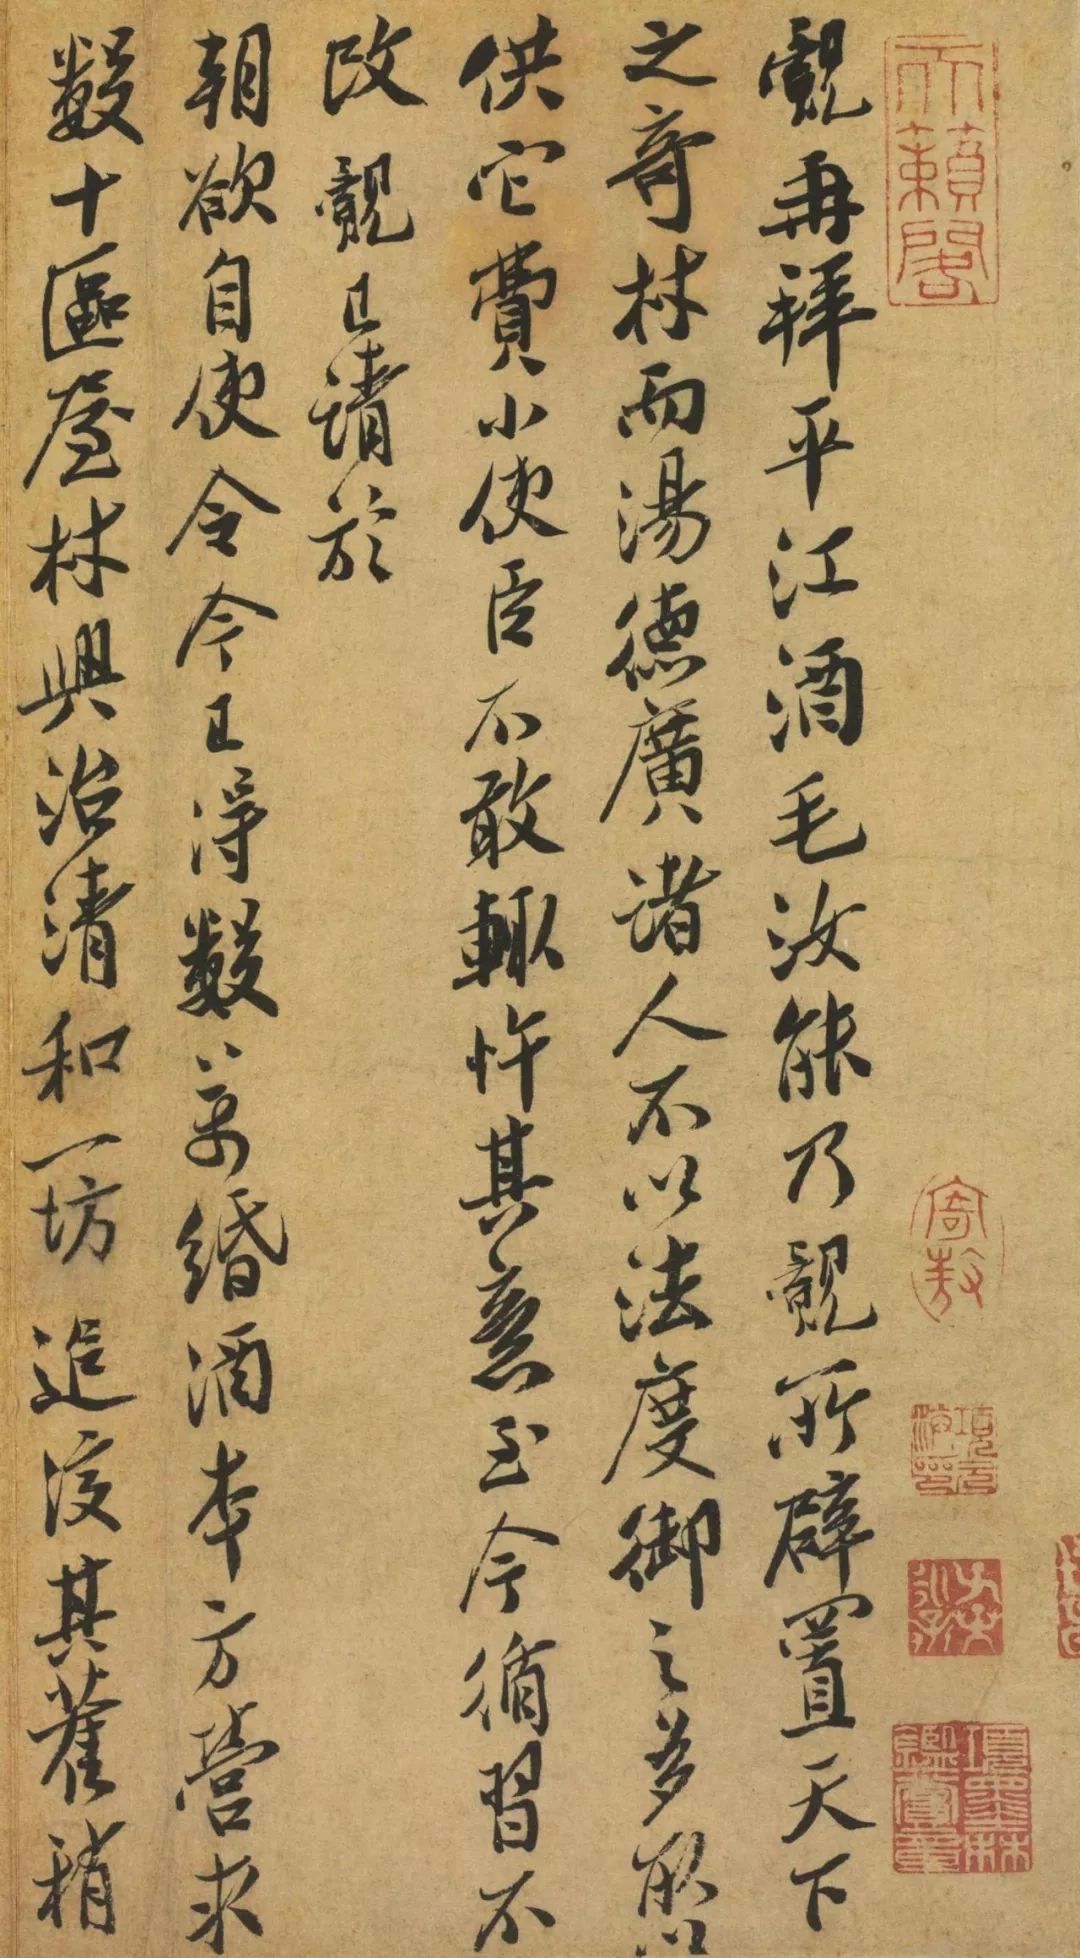 天籟閣
覿再拜平江酒毛汝能乃覿所辟置天下
之奇材而湯德廣諸人不以法度御之多取以
供它費小使臣不敢輒忤其意至今循習不
改覿已請於
朝欲自使令今已得數萬緡酒本方營求
數十區屋材與治清和一坊追復其舊稍
寄敖
項墨林鑑賞章